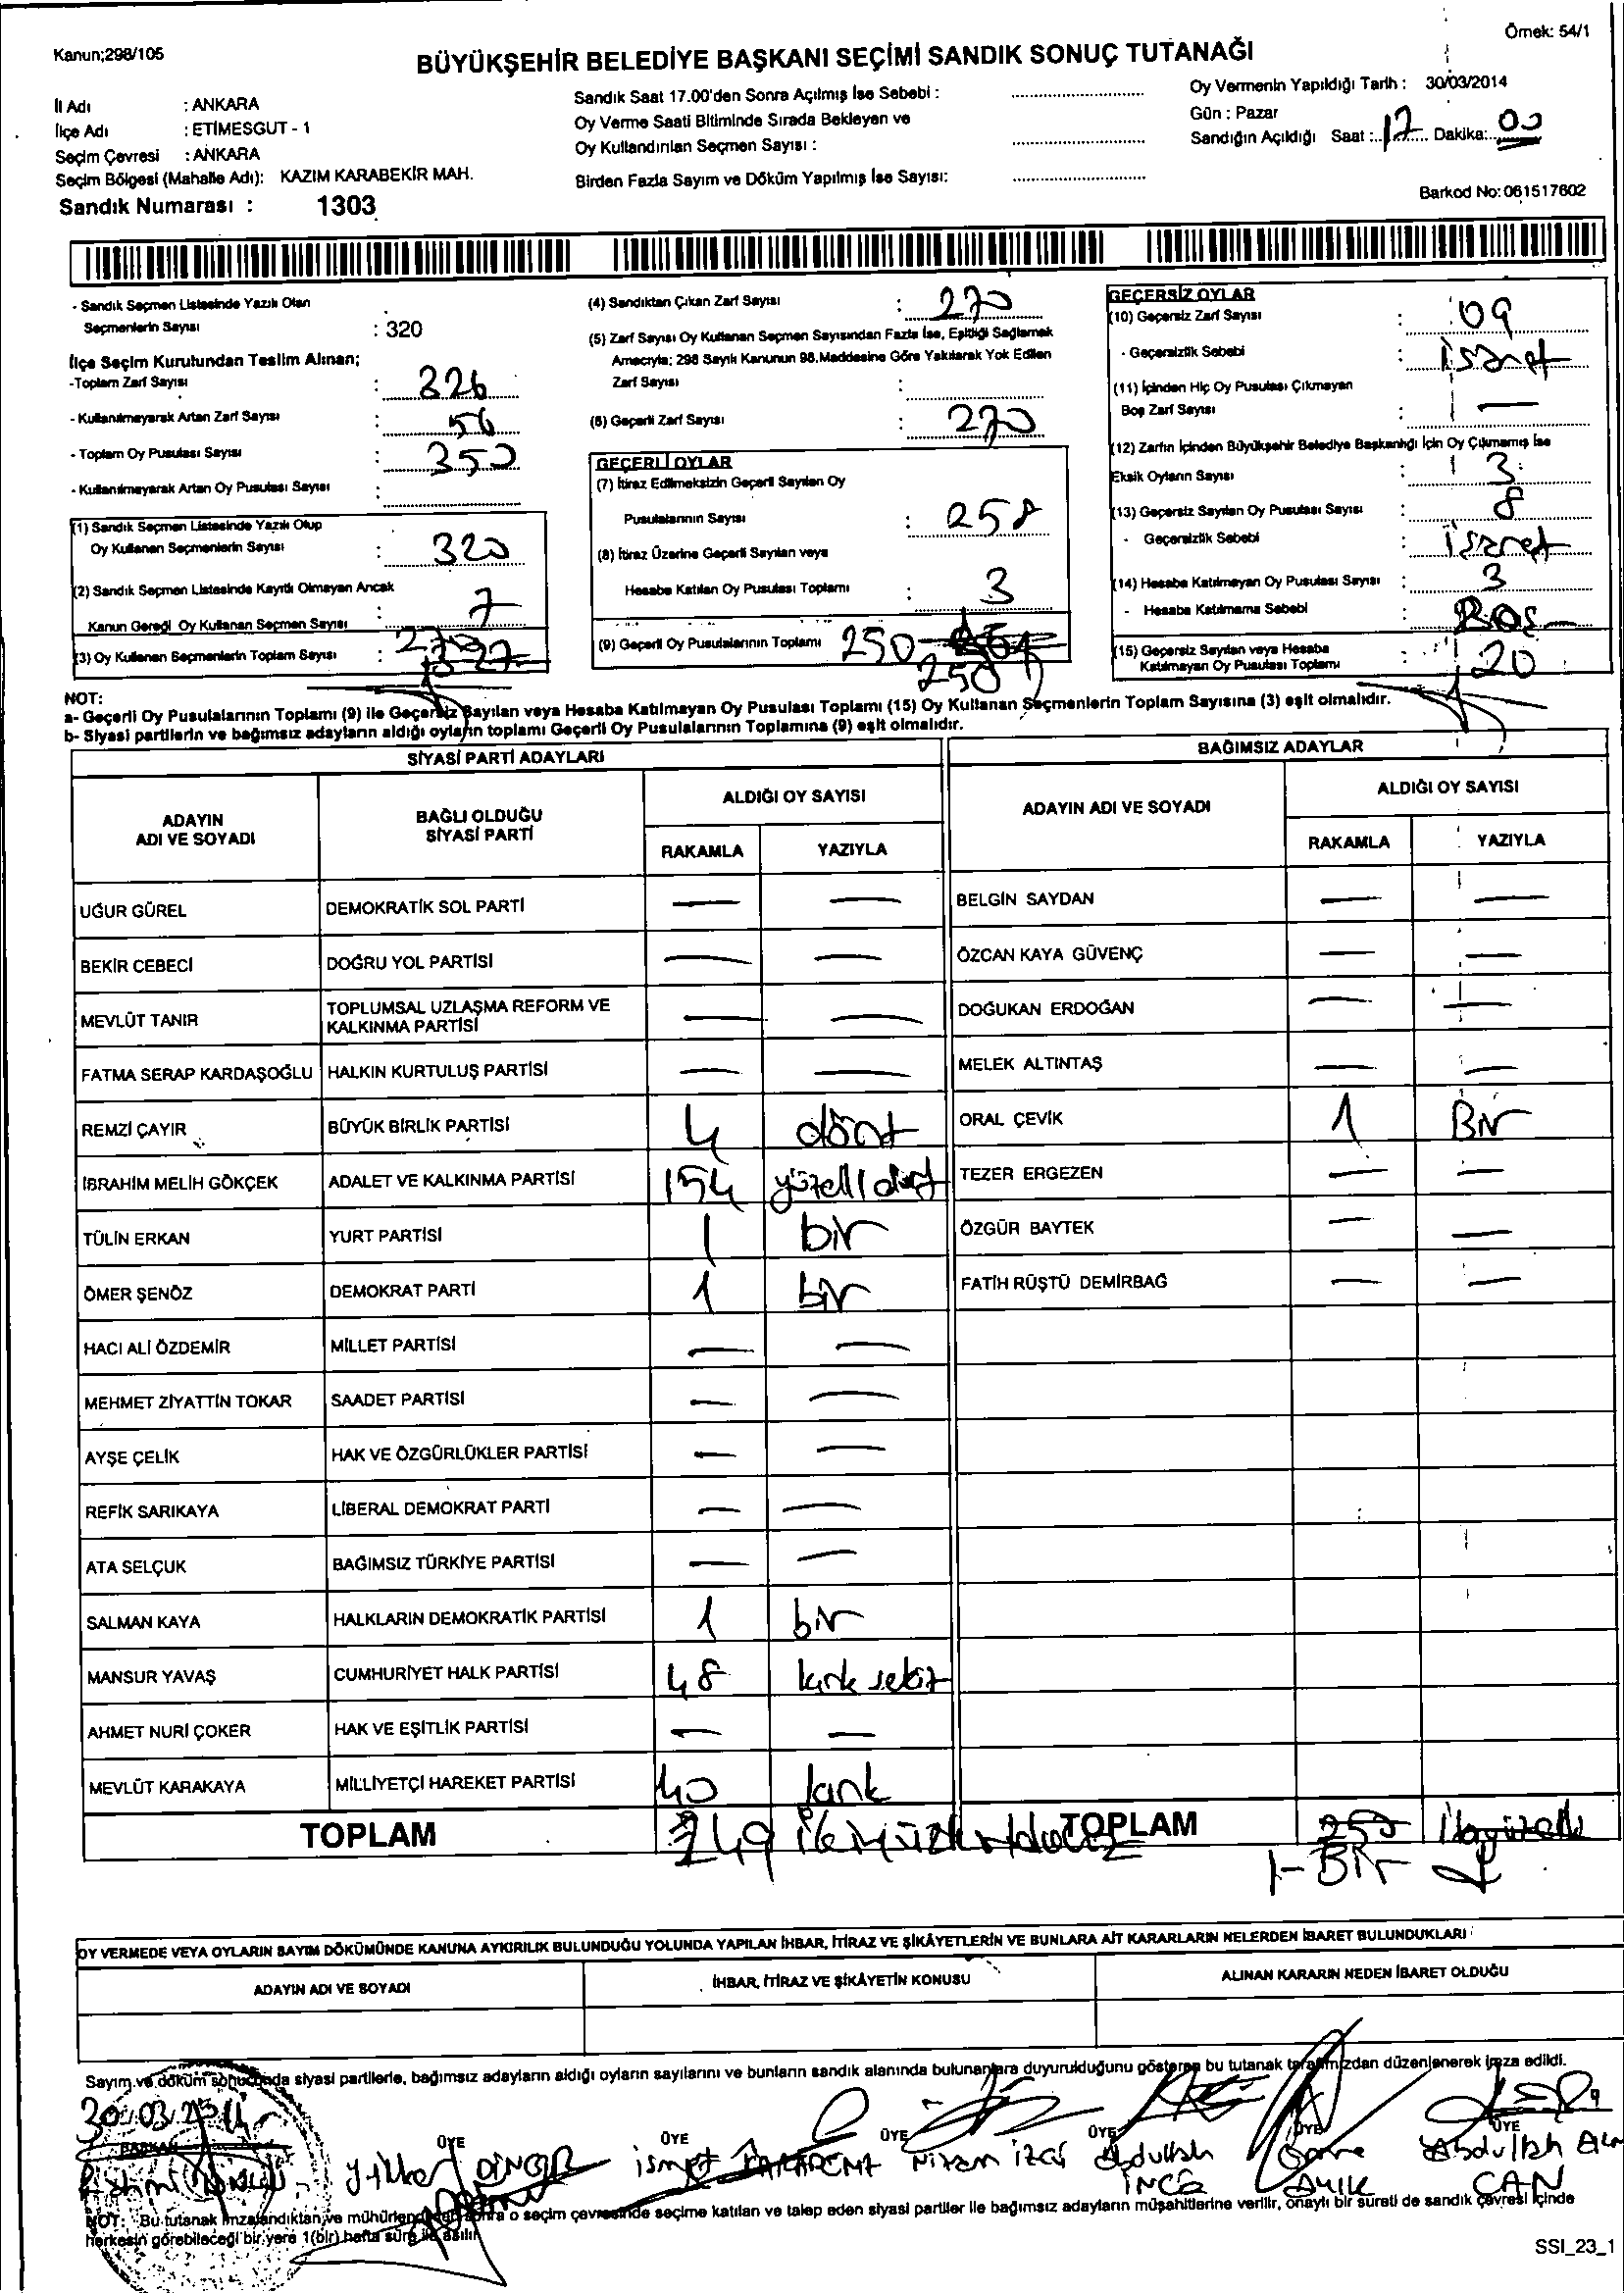 Kanun;298/105
Örnek: 54/1
BÜYÜKŞEHİR BELEDİYE BAŞKANI SEÇİMİ SANDIK SONUÇ TUTANAĞI
İl Adı : ANKARA
İlçe Adı : ETİMESGUT - 1
Seçim Çevresi : ANKARA
Seçim Bölgesi (Mahalle Adı): KAZIM KARABEKİR MAH.
Sandık Numarası : 1303
Sandık Saat 17.00'den Sonra Açılmış İse Sebebi :
Oy Verme Saati Bitiminde Sırada Bekleyen ve
Oy Kullandırılan Seçmen Sayısı :
Birden Fazla Sayım ve Döküm Yapılmış İse Sayısı:
Oy Vermenin Yapıldığı Tarih : 30/03/2014
Gün : Pazar
Sandığın Açıldığı Saat : 17 Dakika: 00
Barkod No: 061517602
- Sandık Seçmen Listesinde Yazılı Olan
Seçmenlerin Sayısı : 320
İlçe Seçim Kurulundan Teslim Alınan;
-Toplam Zarf Sayısı : 326
- Kullanılmayarak Artan Zarf Sayısı : 56
- Toplam Oy Pusulası Sayısı : 350
- Kullanılmayarak Artan Oy Pusulası Sayısı :
(1) Sandık Seçmen Listesinde Yazılı Olup
Oy Kullanan Seçmenlerin Sayısı : 320
(2) Sandık Seçmen Listesinde Kayıtlı Olmayan Ancak
Kanun Gereği Oy Kullanan Seçmen Sayısı : 7
(3) Oy Kullanan Seçmenlerin Toplam Sayısı :
(4) Sandıktan Çıkan Zarf Sayısı : 270
(5) Zarf Sayısı Oy Kullanan Seçmen Sayısından Fazla İse, Eşitliği Sağlamak
Amacıyla; 298 Sayılı Kanunun 98.Maddesine Göre Yakılarak Yok Edilen
Zarf Sayısı :
(6) Geçerli Zarf Sayısı : 270
GEÇERLİ OYLAR
(7) İtiraz Edilmeksizin Geçerli Sayılan Oy
Pusulalarının Sayısı : 258
(8) İtiraz Üzerine Geçerli Sayılan veya
Hesaba Katılan Oy Pusulası Toplamı : 3
(9) Geçerli Oy Pusulalarının Toplamı 250
250
GEÇERSİZ OYLAR
(10) Geçersiz Zarf Sayısı : 09
- Geçersizlik Sebebi : işaret
(11) İçinden Hiç Oy Pusulası Çıkmayan
Boş Zarf Sayısı : —
(12) Zarfın İçinden Büyükşehir Belediye Başkanlığı İçin Oy Çıkmamış İse
Eksik Oyların Sayısı : 3
(13) Geçersiz Sayılan Oy Pusulası Sayısı : 8
- Geçersizlik Sebebi : işaret
(14) Hesaba Katılmayan Oy Pusulası Sayısı : 3
- Hesaba Katılmama Sebebi : Boş
(15) Geçersiz Sayılan veya Hesaba
Katılmayan Oy Pusulası Toplamı : 20
NOT:
a- Geçerli Oy Pusulalarının Toplamı (9) ile Geçersiz Sayılan veya Hesaba Katılmayan Oy Pusulası Toplamı (15) Oy Kullanan Seçmenlerin Toplam Sayısına (3) eşit olmalıdır.
b- Siyasi partilerin ve bağımsız adayların aldığı oyların toplamı Geçerli Oy Pusulalarının Toplamına (9) eşit olmalıdır.
SİYASİ PARTİ ADAYLARI
ADAYIN ADI VE SOYADI
BAĞLI OLDUĞU SİYASİ PARTİ
ALDIĞI OY SAYISI
RAKAMLA YAZIYLA
UĞUR GÜREL DEMOKRATİK SOL PARTİ — —
BEKİR CEBECİ DOĞRU YOL PARTİSİ — —
MEVLÜT TANIR TOPLUMSAL UZLAŞMA REFORM VE KALKINMA PARTİSİ — —
FATMA SERAP KARDAŞOĞLU HALKIN KURTULUŞ PARTİSİ — —
REMZİ ÇAYIR BÜYÜK BİRLİK PARTİSİ 4 dört
İBRAHİM MELİH GÖKÇEK ADALET VE KALKINMA PARTİSİ 154 yüzelli dört
TÜLİN ERKAN YURT PARTİSİ 1 bir
ÖMER ŞENÖZ DEMOKRAT PARTİ 1 bir
HACI ALİ ÖZDEMİR MİLLET PARTİSİ — —
MEHMET ZİYATTİN TOKAR SAADET PARTİSİ — —
AYŞE ÇELİK HAK VE ÖZGÜRLÜKLER PARTİSİ — —
REFİK SARIKAYA LİBERAL DEMOKRAT PARTİ — —
ATA SELÇUK BAĞIMSIZ TÜRKİYE PARTİSİ — —
SALMAN KAYA HALKLARIN DEMOKRATİK PARTİSİ 1 bir
MANSUR YAVAŞ CUMHURİYET HALK PARTİSİ 48 kırk sekiz
AHMET NURİ ÇOKER HAK VE EŞİTLİK PARTİSİ — —
MEVLÜT KARAKAYA MİLLİYETÇİ HAREKET PARTİSİ 40 kırk
TOPLAM 249 ikiyüzkırkdokuz
BAĞIMSIZ ADAYLAR
ADAYIN ADI VE SOYADI
ALDIĞI OY SAYISI
RAKAMLA YAZIYLA
BELGİN SAYDAN — —
ÖZCAN KAYA GÜVENÇ — —
DOĞUKAN ERDOĞAN — —
MELEK ALTINTAŞ — —
ORAL ÇEVİK 1 Bir
TEZER ERGEZEN — —
ÖZGÜR BAYTEK — —
FATİH RÜŞTÜ DEMİRBAĞ — —
TOPLAM 250 ikiyüzelli
1- Bir
OY VERMEDE VEYA OYLARIN SAYIM DÖKÜMÜNDE KANUNA AYKIRILIK BULUNDUĞU YOLUNDA YAPILAN İHBAR, İTİRAZ VE ŞİKÂYETLERİN VE BUNLARA AİT KARARLARIN NELERDEN İBARET BULUNDUKLARI
ADAYIN ADI VE SOYADI
İHBAR, İTİRAZ VE ŞİKÂYETİN KONUSU
ALINAN KARARIN NEDEN İBARET OLDUĞU
Sayım ve döküm sonucunda siyasi partilerle, bağımsız adayların aldığı oyların sayılarını ve bunların sandık alanında bulunanlara duyurulduğunu gösteren bu tutanak tarafımızdan düzenlenerek imza edildi.
30.03.2014
BAŞKAN ÜYE ÜYE ÜYE ÜYE ÜYE ÜYE
DİNÇER ismet Nizam izci Abdullah İNCE Abdullah CAN
NOT: Bu tutanak imzalandıktan ve mühürlendikten sonra o seçim çevresinde seçime katılan ve talep eden siyasi partiler ile bağımsız adayların müşahitlerine verilir, onaylı bir sureti de sandık çevresi içinde
herkesin görebileceği bir yere 1(bir) hafta süre ile asılır.
SSI_23_1